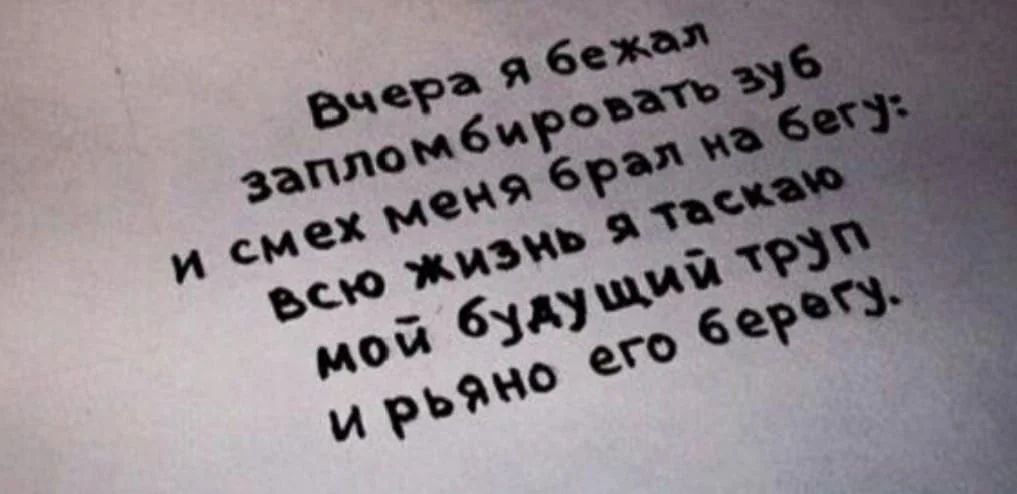 Вчера я бежал
запломбировать зуб
и смех меня брал на бегу:
всю жизнь я таскаю
мой будущий труп
и рьяно его берегу.